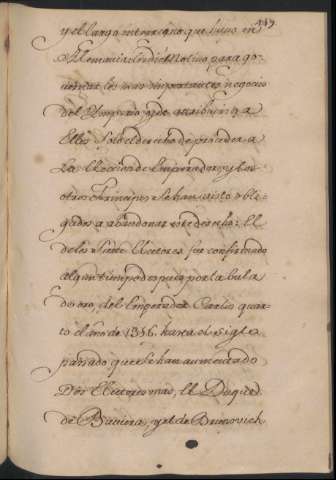 119
y el largo interregno que huvo en
Alemania les dió Motivo para go-
vernar los mas importantes negocios
del Imperio, y de atribuirse a
Ellos solo el derecho de proceder a
La Eleccion de Emperador, y los
otros Principes se han visto obli-
gados a abandonar este derecho: El
de los Siete Electores fue confirmado
algun tiempo despues por la bula
de oro, del Emperador Carlos quar-
to el año de 1356. hasta el siglo
passado que se han aumentado
Dos Electores mas, El Duque
de Baviera, y el de Brunsvich